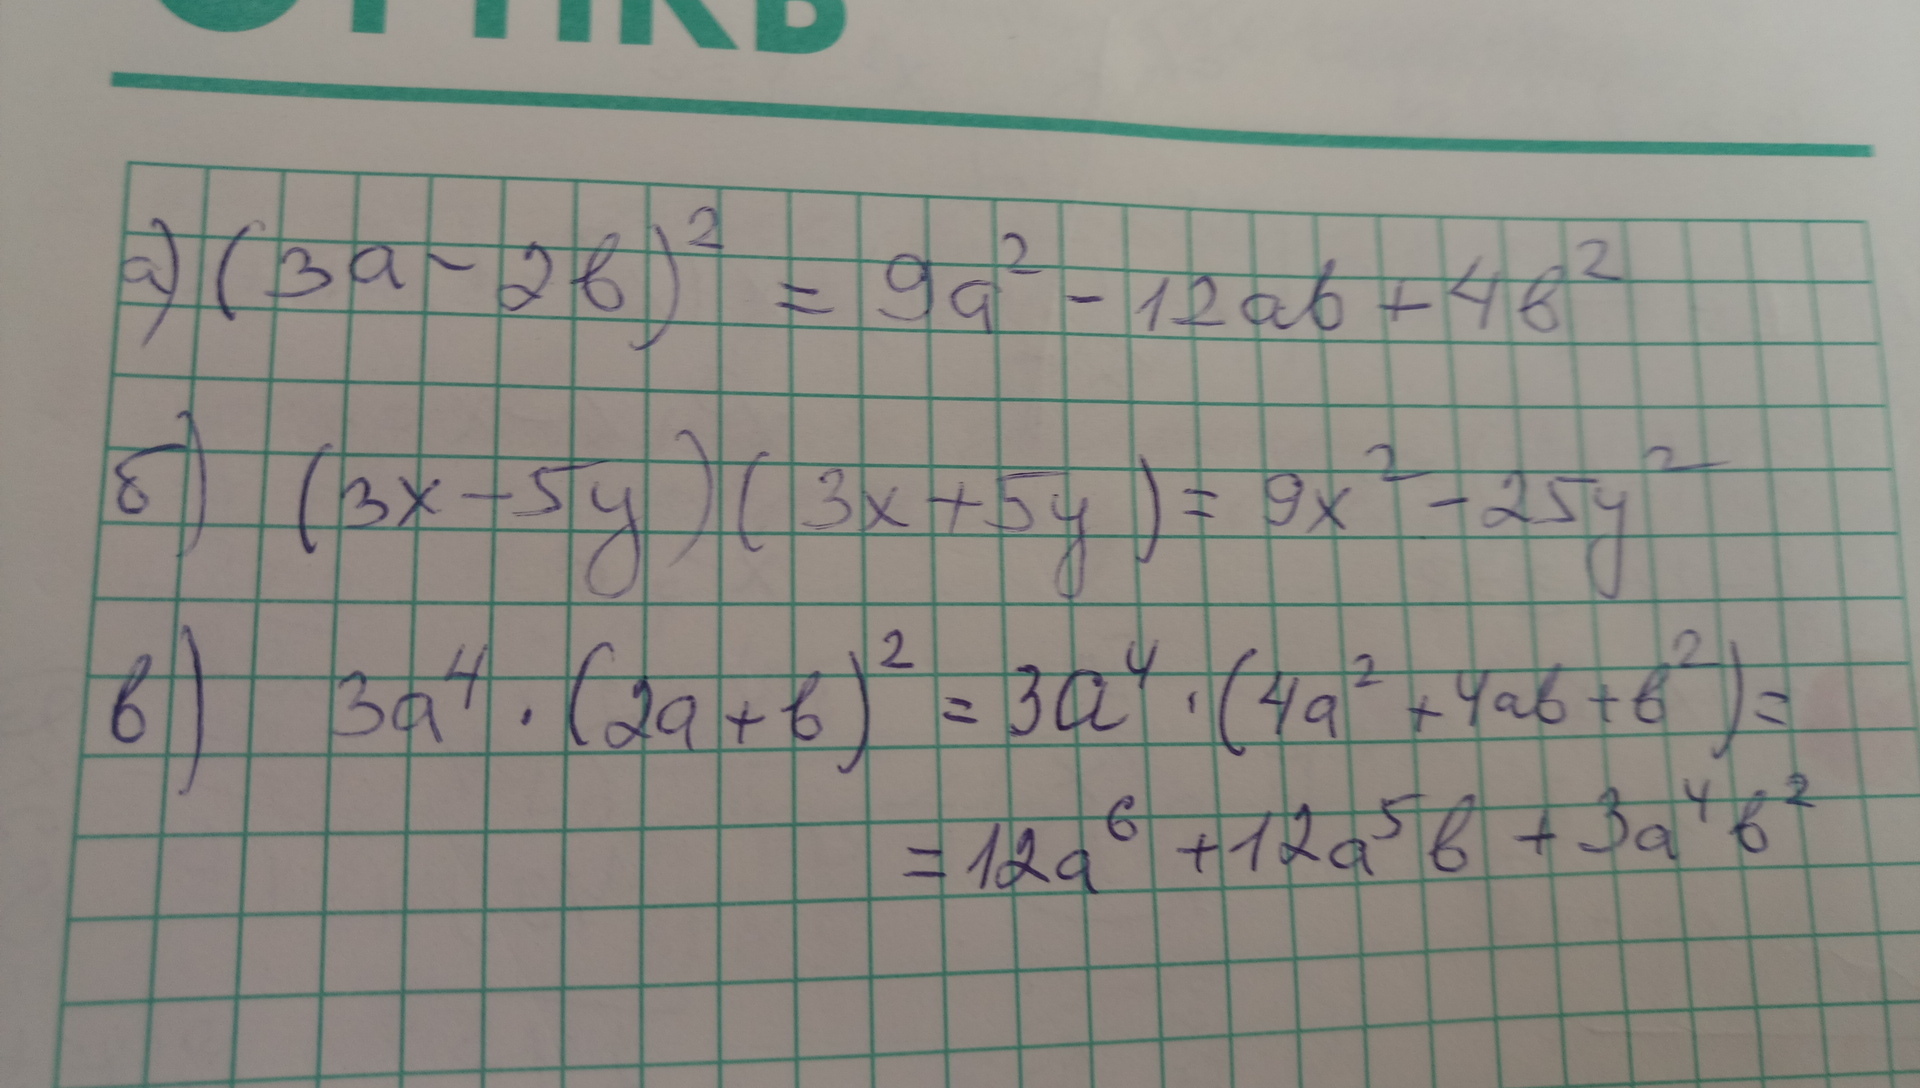 а) (3a - 2b)² = 9a² - 12ab + 4b²
б) (3x - 5y)(3x + 5y) = 9x² - 25y²
в) 3a⁴ · (2a + b)² = 3a⁴ · (4a² + 4ab + b²) =
= 12a⁶ + 12a⁵b + 3a⁴b²